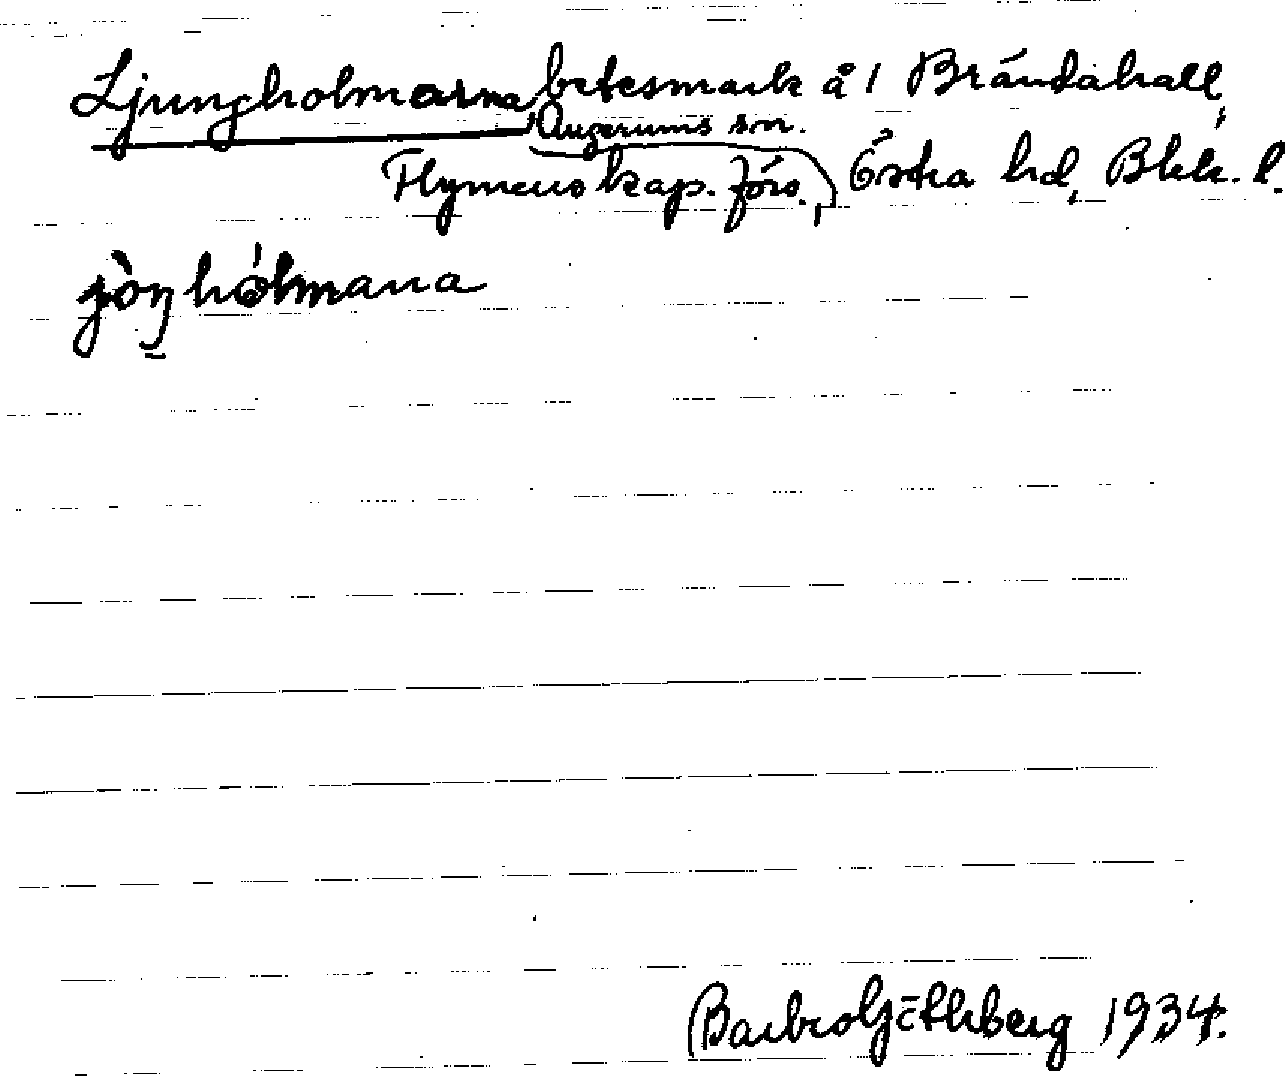 Ljungholmarna, betesmark å 1 Brändahall,
Augerums sn.
Flymens kap. förs., Östra hd, Blek. l.
jòŋhólmana
Barbro Götherberg 1934.